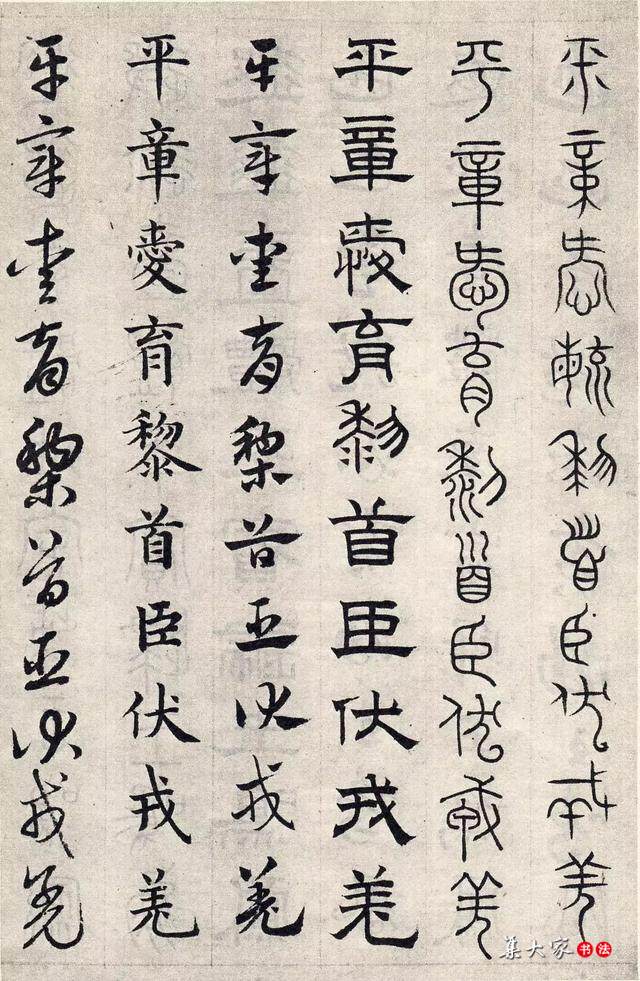 平章愛育黎首臣伏戎羌
平章愛育黎首臣伏戎羌
平章愛育黎首臣伏戎羌
平章愛育黎首臣伏戎羌
平章愛育黎首臣伏戎羌
平章愛育黎首臣伏戎羌
集大家書法